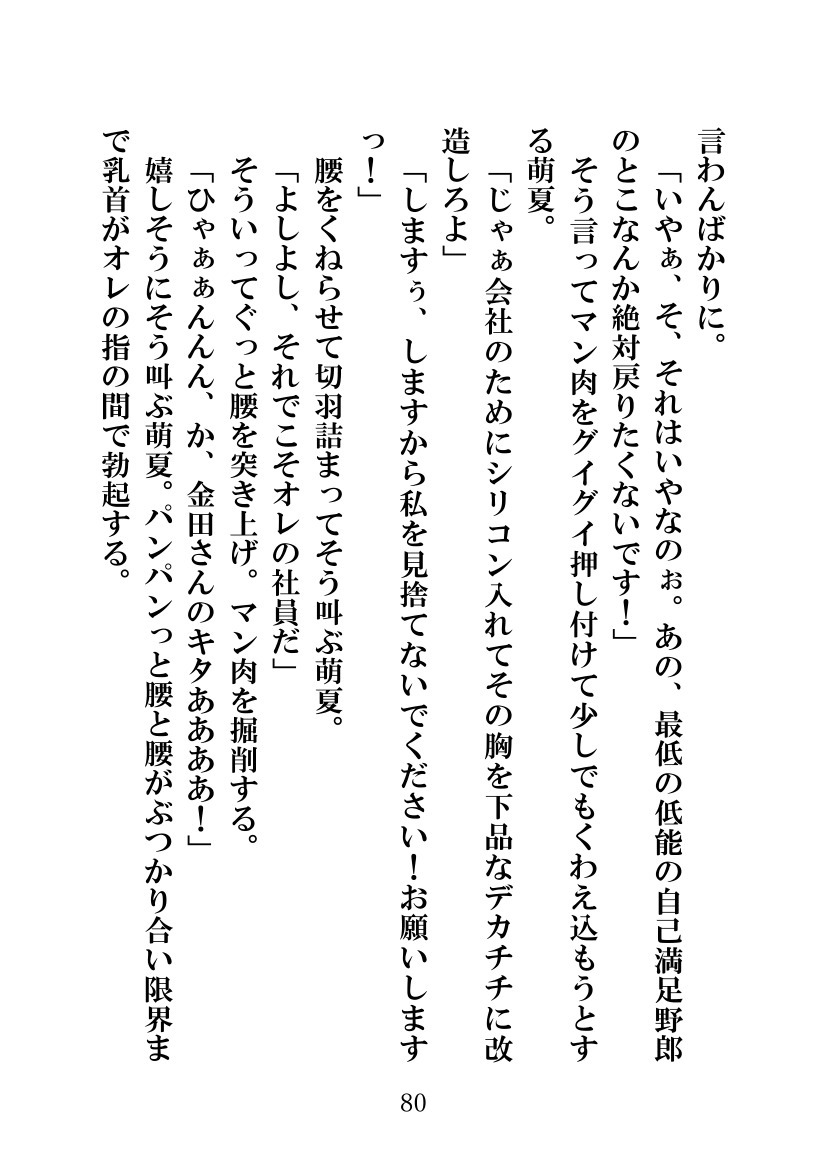 言わんばかりに。
「いやぁ、そ、それはいやなのぉ。あの、最低の低能の自己満足野郎
のとこなんか絶対戻りたくないです！」
そう言ってマン肉をグイグイ押し付けて少しでもくわえ込もうとす
る萌夏。
「じゃぁ会社のためにシリコン入れてその胸を下品なデカチチに改
造しろよ」
「しますぅ、しますから私を見捨てないでください！お願いします
っ！」
腰をくねらせて切羽詰まってそう叫ぶ萌夏。
「よしよし、それでこそオレの社員だ」
そういってぐっと腰を突き上げ。マン肉を掘削する。
「ひゃぁぁんんん、か、金田さんのキタああああ！」
嬉しそうにそう叫ぶ萌夏。パンパンっと腰と腰がぶつかり合い限界ま
で乳首がオレの指の間で勃起する。
80